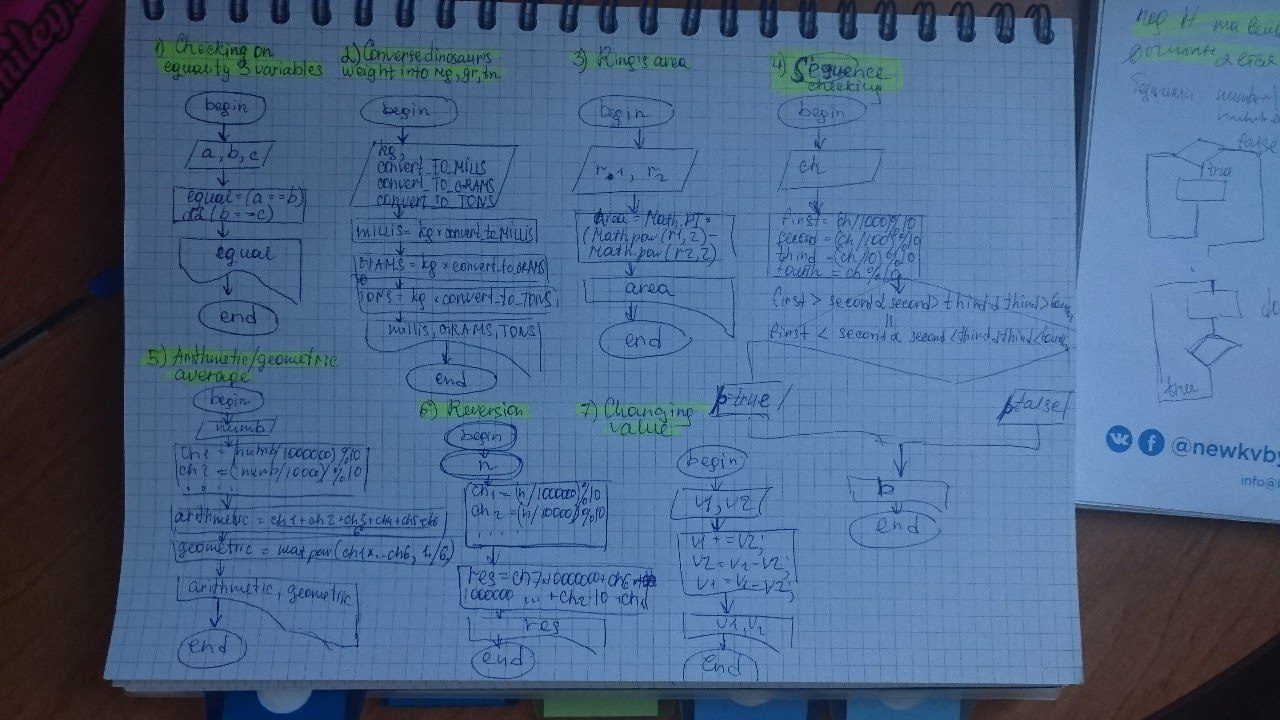 1) Checking on
equality 3 variables
begin
a, b, c
equal = (a == b)
(b == c)
equal
end
2) Converse dinosaurs
weight into mg, gr, tn
begin
kg,
convert_TO_MILLIS
convert_TO_GRAMS
convert_TO_TONS
millis = kg * convert_to_MILLIS
GRAMS = kg * convert_to_GRAMS
TONS = kg * convert_to_TONS,
millis, GRAMS, TONS
end
3) Ring's area
begin
r1, r2
area = Math.PI *
(Math.pow(r1, 2) -
Math.pow(r2, 2)
area
end
4) Sequence
checking
begin
ch
first = (ch/1000)%10
second = (ch/100)%10
third = (ch/10)%10
fourth = ch%10
first > second & second > third & third >
||
first < second & second < third & third <
true
false
b
end
5) Arithmetic/geometric
average
begin
numb
ch1 = (numb/100000)%10
ch2 = (numb/10000)%10
. . .
arithmetic = ch1+ch2+ch3+ch4+ch5+ch6
6
geometric = mat pow(ch1*...ch6, 1/6)
arithmetic, geometric
end
6) Reversion
begin
n
ch1 = (n/100000)%10
ch2 = (n/10000)%10
. . . .
res = ch7*1000000+ch6
100000 ... +ch2*10 +ch1
res
end
7) Changing
value
begin
v1, v2
v1 += v2;
v2 = v1 - v2;
v1 = v1 - v2;
v1, v2
end
miley
false
true
true
@newkvby
info@